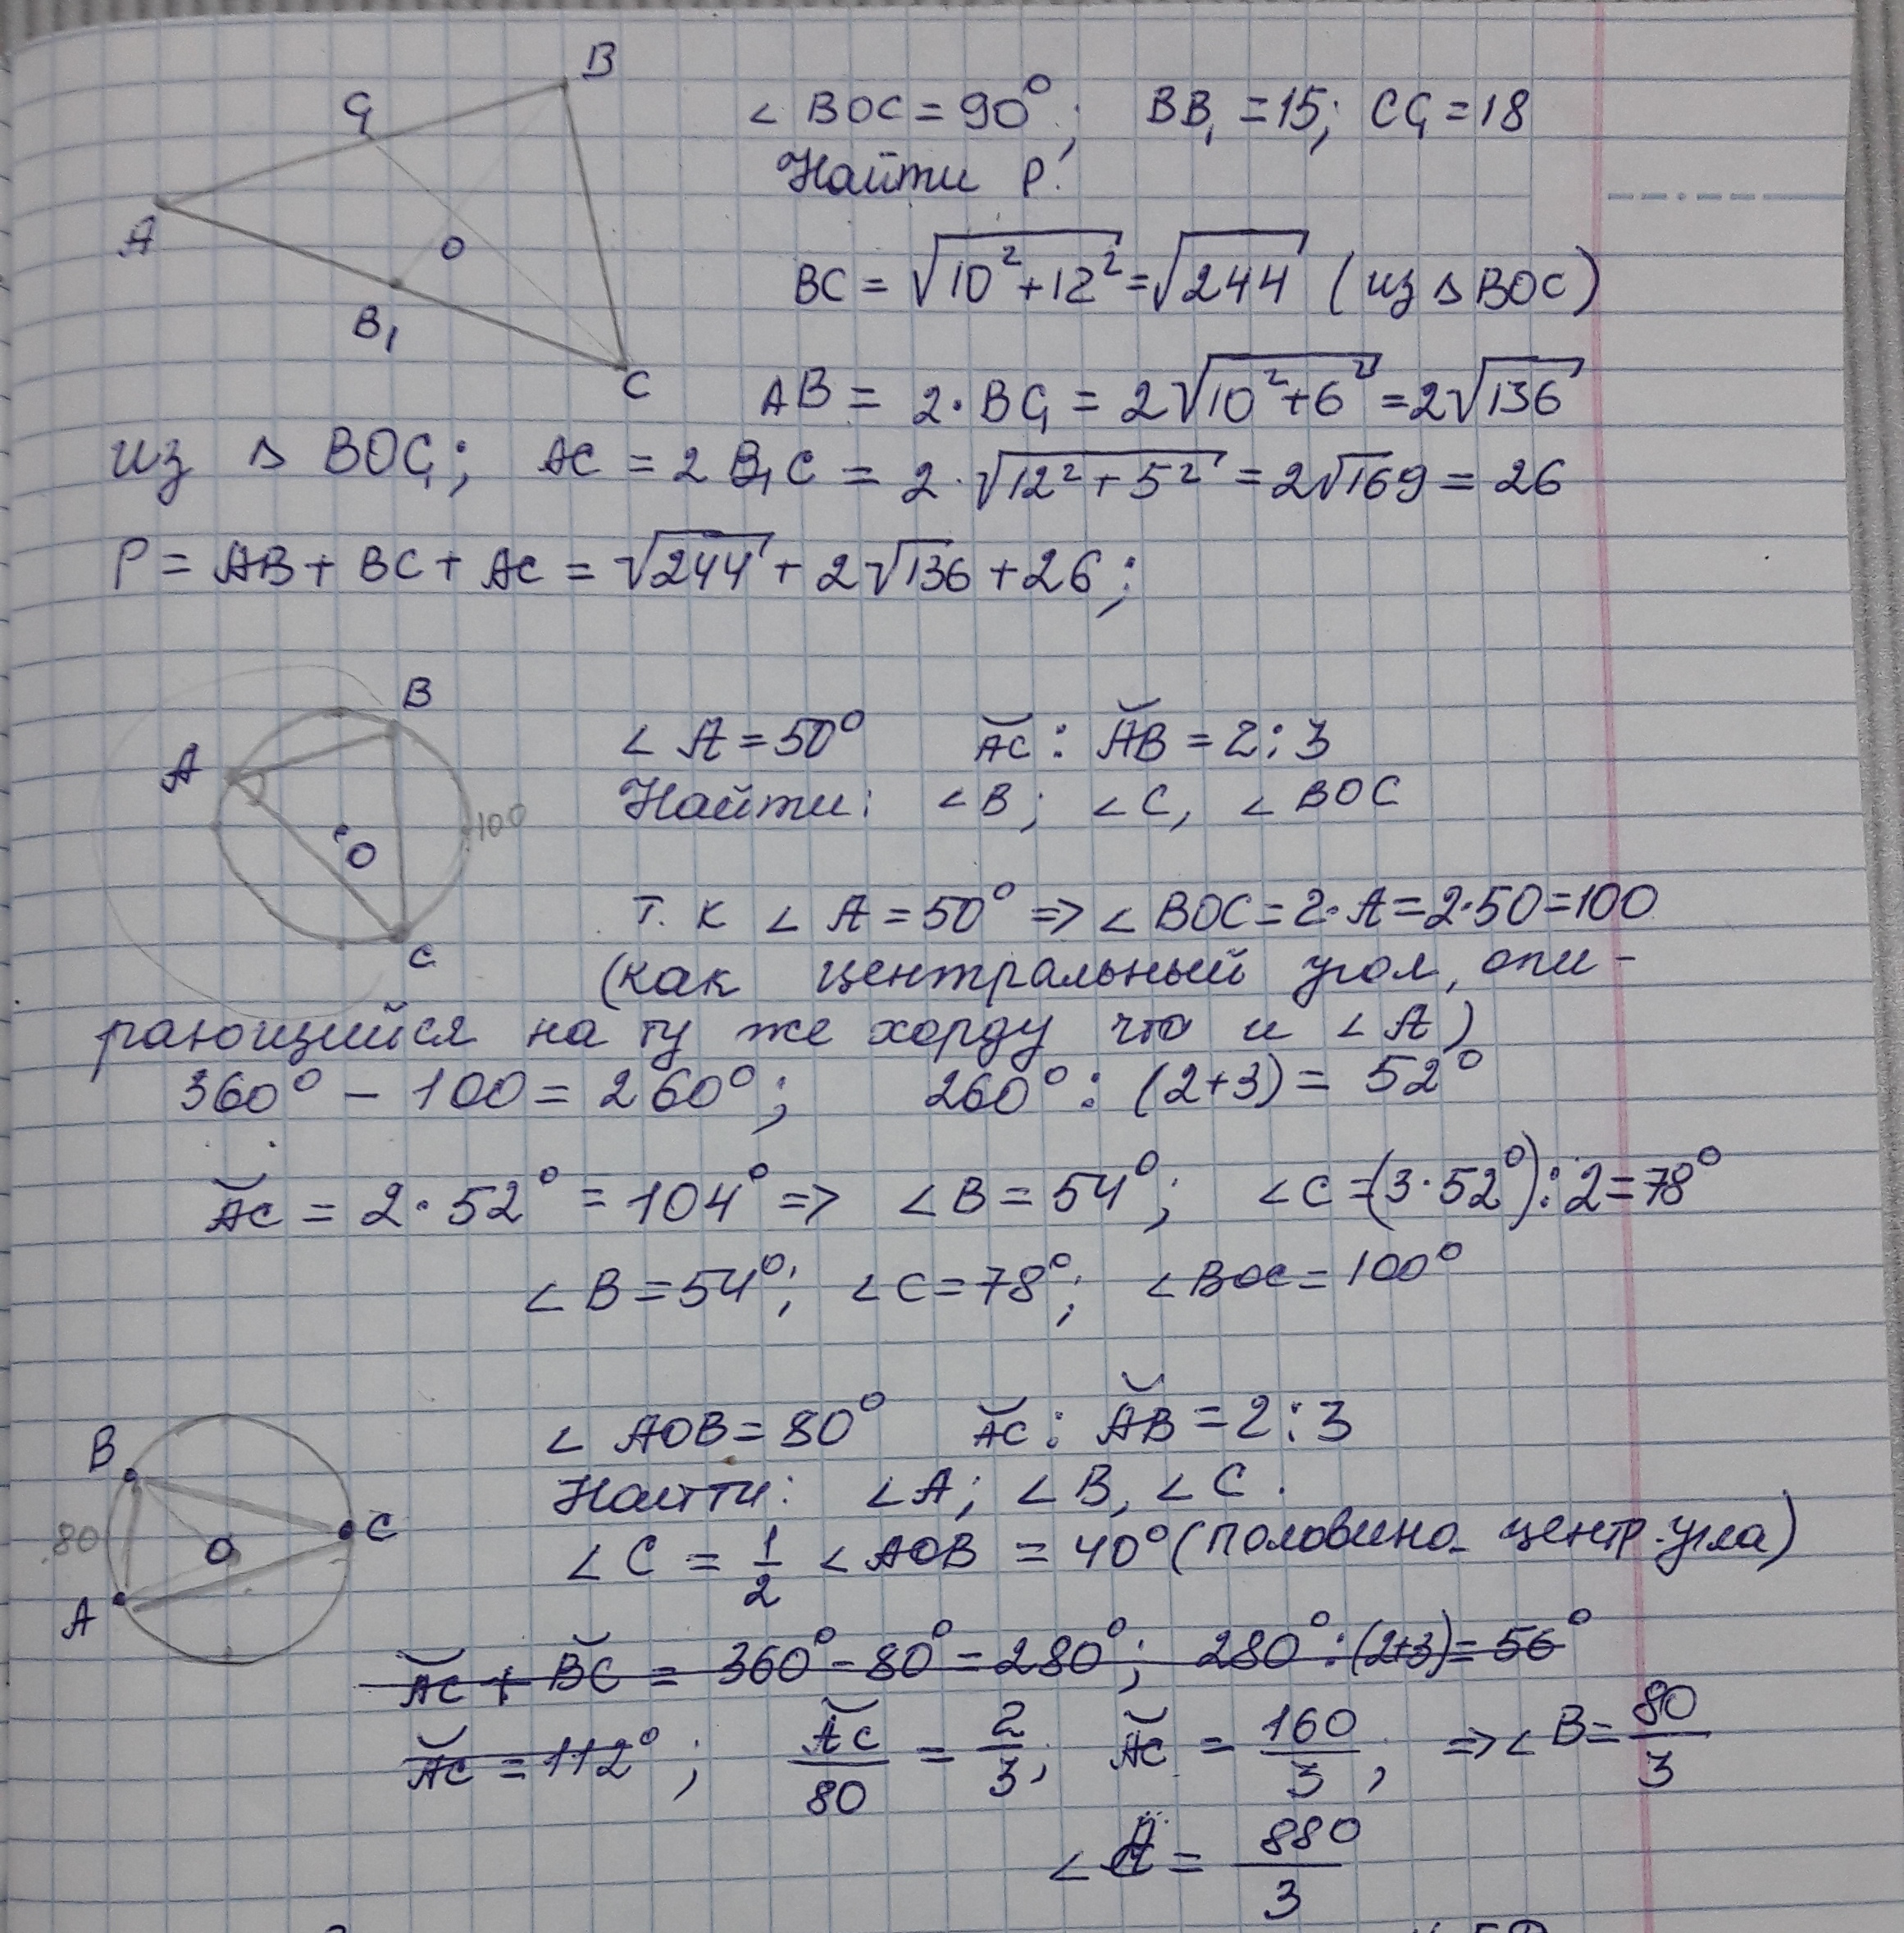 B
C₁
A
O
B₁
C
∠ BOC = 90°; BB₁ = 15; CC₁ = 18
Найти P.
BC = √(10² + 12²) = √244 (из △ BOC)
AB = 2 · BC₁ = 2√(10² + 6²) = 2√136
из △ BOC₁; AC = 2 B₁C = 2 · √(12² + 5²) = 2√169 = 26
P = AB + BC + AC = √244 + 2√136 + 26;
B
A
100
O
C
∠ A = 50° ◡AC : ◡AB = 2 : 3
Найти: ∠B; ∠C, ∠BOC
т. к ∠ A = 50° => ∠ BOC = 2 · A = 2 · 50 = 100
(как центральный угол, опи-
рающийся на ту же хорду что и ∠ A)
360° - 100 = 260°; 260° : (2+3) = 52°
◡AC = 2 · 52° = 104° => ∠ B = 54°; ∠C = (3 · 52°) : 2 = 78°
∠ B = 54°; ∠ C = 78°; ∠ BOC = 100°
B
80
O
C
A
∠ AOB = 80° ◡AC : ◡AB = 2 : 3
Найти: ∠A; ∠B, ∠C.
∠ C = 1/2 ∠ AOB = 40° (половино_ центр. угла)
◡AC + ◡BC = 360° - 80° = 280°; 280° : (2+3) = 56°
◡AC = 112°; ◡AC/80 = 2/3; ◡AC = 160/3; => ∠ B = 80/3
∠ A = 880/3